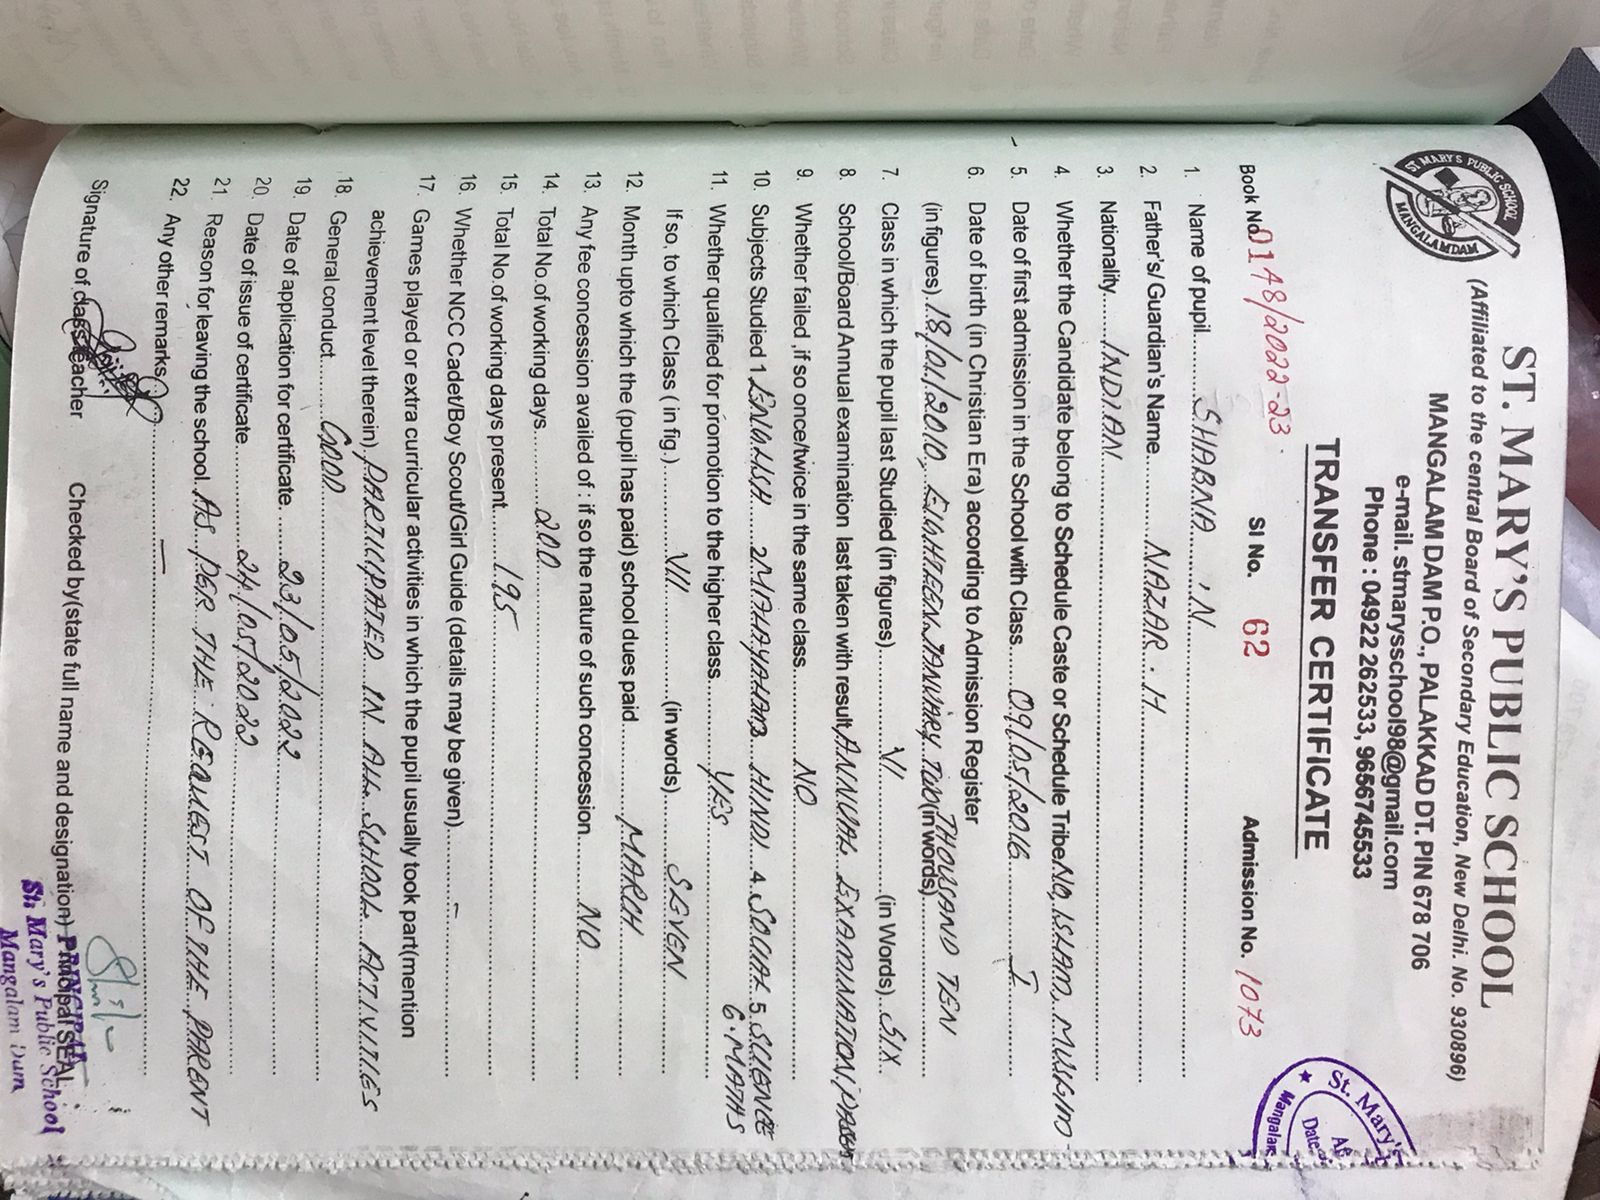 ST. MARY'S PUBLIC SCHOOL
MANGALAMDAM
ST. MARY'S PUBLIC SCHOOL
(Affiliated to the central Board of Secondary Education, New Delhi. No. 930896)
MANGALAM DAM P.O., PALAKKAD DT. PIN 678 706
e-mail. stmarysschool98@gmail.com
Phone : 04922 262533, 9656745533
TRANSFER CERTIFICATE
St. Mary's
Mangalam
Book No. 0148/2022-23 SI No. 62 Admission No. 1073
1. Name of pupil SHABNA .N
2. Father's/ Guardian's Name NAZAR . H
3. Nationality INDIAN
4. Whether the Candidate belong to Schedule Caste or Schedule Tribe NO, ISLAM, MUSLIM
5. Date of first admission in the School with Class 09/05/2016 I
6. Date of birth (in Christian Era) according to Admission Register
(in figures) 18/01/2010, EIGHTEEN JANUARY TWO (in words) THOUSAND TEN
7. Class in which the pupil last Studied (in figures) VI (in Words) SIX
8. School/Board Annual examination last taken with result, ANNUAL EXAMINATION, PASSED
9. Whether failed ,if so once/twice in the same class NO
10. Subjects Studied 1 ENGLISH 2 MALAYALAM 3. HINDI 4. SOCIAL 5. SCIENCE
6. MATHS
11. Whether qualified for promotion to the higher class YES
If so, to which Class ( in fig.) VII (in words) SEVEN
12. Month upto which the (pupil has paid) school dues paid MARCH
13. Any fee concession availed of : if so the nature of such concession NO
14. Total No.of working days 200
15. Total No.of working days present 195
16. Whether NCC Cadet/Boy Scout/Girl Guide (details may be given) -
17. Games played or extra curricular activities in which the pupil usually took part(mention
achievement level therein) PARTICIPATED IN ALL SCHOOL ACTIVITIES
18. General conduct GOOD
19. Date of application for certificate 23/05/2022
20. Date of issue of certificate 24/05/2022
21. Reason for leaving the school AS PER THE REQUEST OF THE PARENT
22. Any other remarks —
Signature of class teacher Checked by(state full name and designation) Principal SEAL
PRINCIPAL
St. Mary's Public School
Mangalam Dam